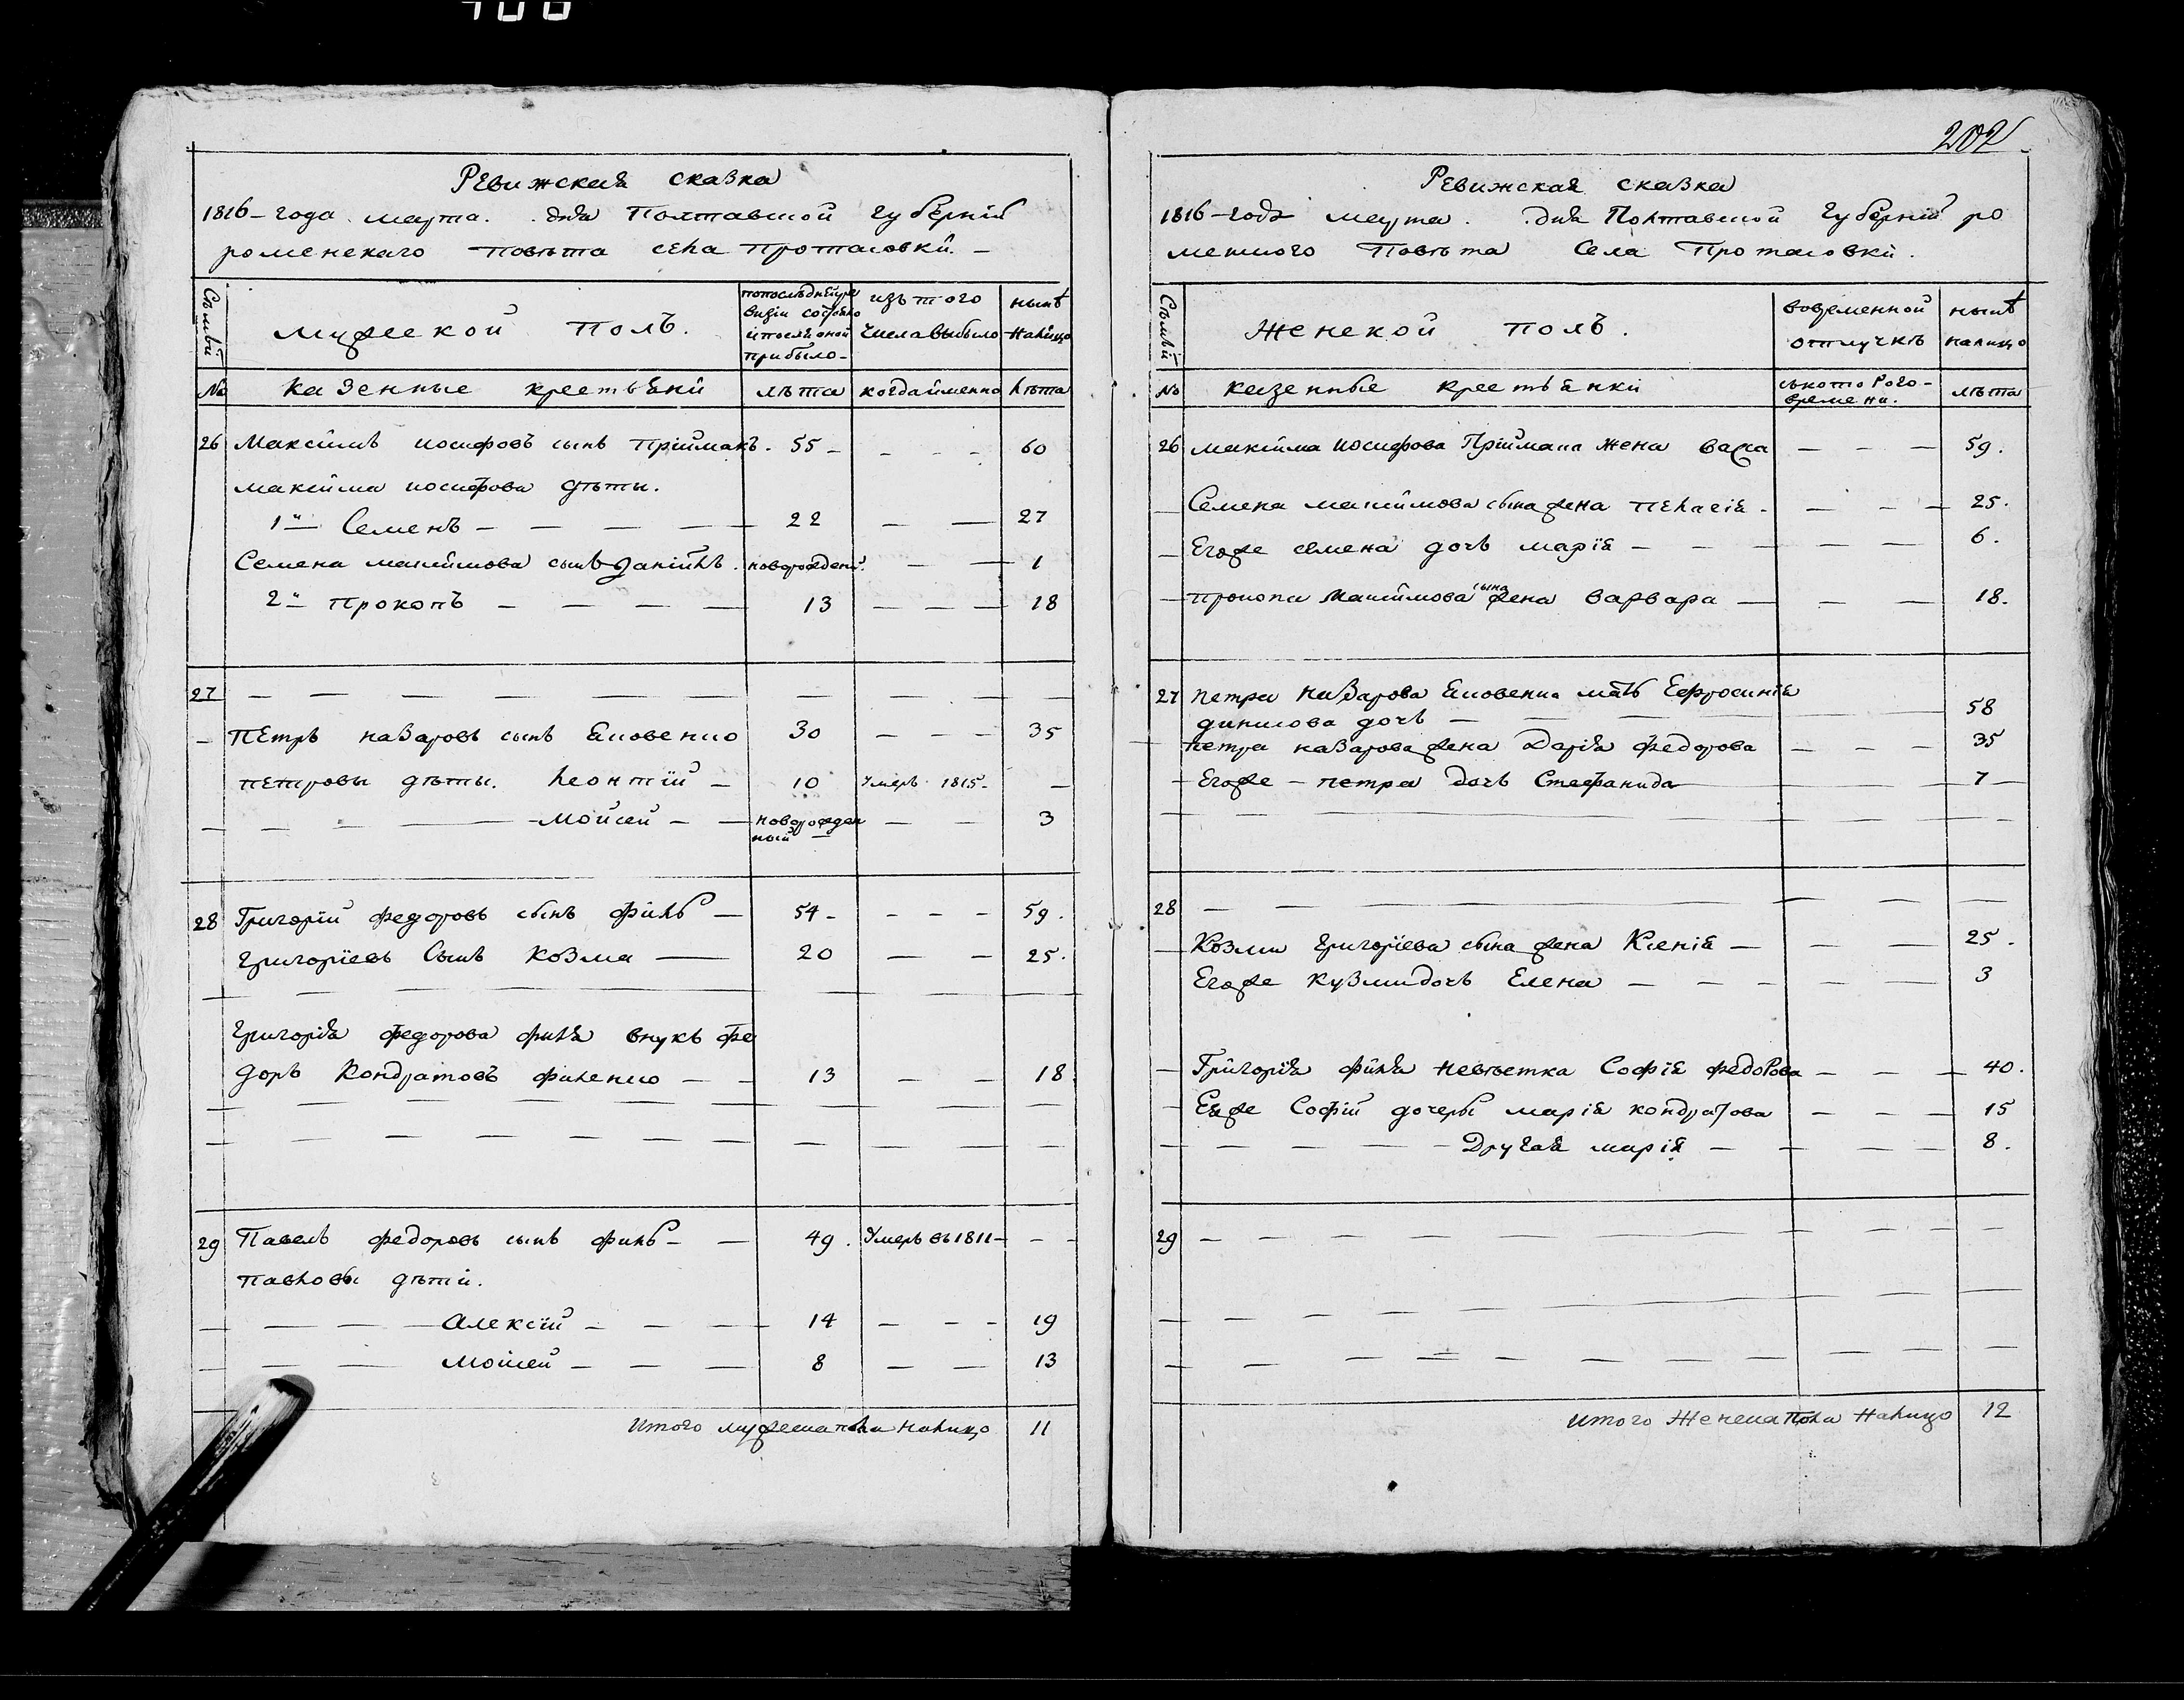 Ревижская сказка
1816-года марта. дня Полтавской губернїи
роменскаго повѣта села Протасовки. —
Семьи
мужеской полъ.
попослѣдней ре
визіи состояло
и после оной
прибыло-
изъ того
числа выбыло
нынѣ
налицо
№ казенные крестьяни лѣта когда именно лѣта
26 Максимъ иосифовъ сынъ Прїймакъ. 55 — — — — 60
максима иосифова дѣты.
1й Семенъ — — — — 22 — — 27
Семена максимова сынъ Данїилъ. новорожденї. — — 1
2й Прокопъ — — — — 13 — — — 18
27 — — — — — — — — — —
— Петръ назаровъ сынъ Яковенко 30 — — — 35
петровы дѣты. Леонтїй — 10 умеръ 1815 — —
— — — — Мойсей — — новорожден
ный — — — 3
28 Григорїй федоровъ сынъ филь — 54 — — — — 59.
григорїевъ сынъ Козма — 20 — — 25.
Григорїя федорова филя внукъ фе
доръ Кондратовъ филенко — — 13 — — 18
29 Павелъ федоровъ сынъ филь — — 49. умеръ въ 1811 — — —
павловы дѣти.
— — — Алексїй — — — 14 — — — 19
— — — Мойсей — — — 8 — — 13
Итого мужеска пола налицо 11
202
Ревижская сказка
1816-года марта. дня Полтавской губернїи ро
менского Повѣта Села Протасовки.
Семьи
Женской полъ.
вовременной
отлучкѣ
нынѣ
налицо
№ казенные крестьянки
съкоторого-
времени.
лѣта
26 максима иосифова Прїймака жена Васса — — — 59.
— Семена максимова сына жена Пелагія — — — — 25.
— Егоже семена дочь марїя — — — — — 6.
— прокопа максимова сына жена варвара — — — 18.
27 петра назарова Яковенка мать Ефросинїя
данилова дочь — — — 58
петра назарова жена Дарїя федорова — — — 35
— Егоже — петра дочь Стефанида — 7 —
28 — — — — —
— Козми григорїева сына жена Ксенїя — — — 25.
Егоже кузми дочь Елена — — — — — 3
— Григорїя филя невѣстка Софїя федорова — — — 40.
— Еяже Софїи дочеры марїя кондратова — — — 15
— — — — — Другая марїя — — — — 8.
29 — — — — — — — — — — —
Итого Женска пола налицо 12